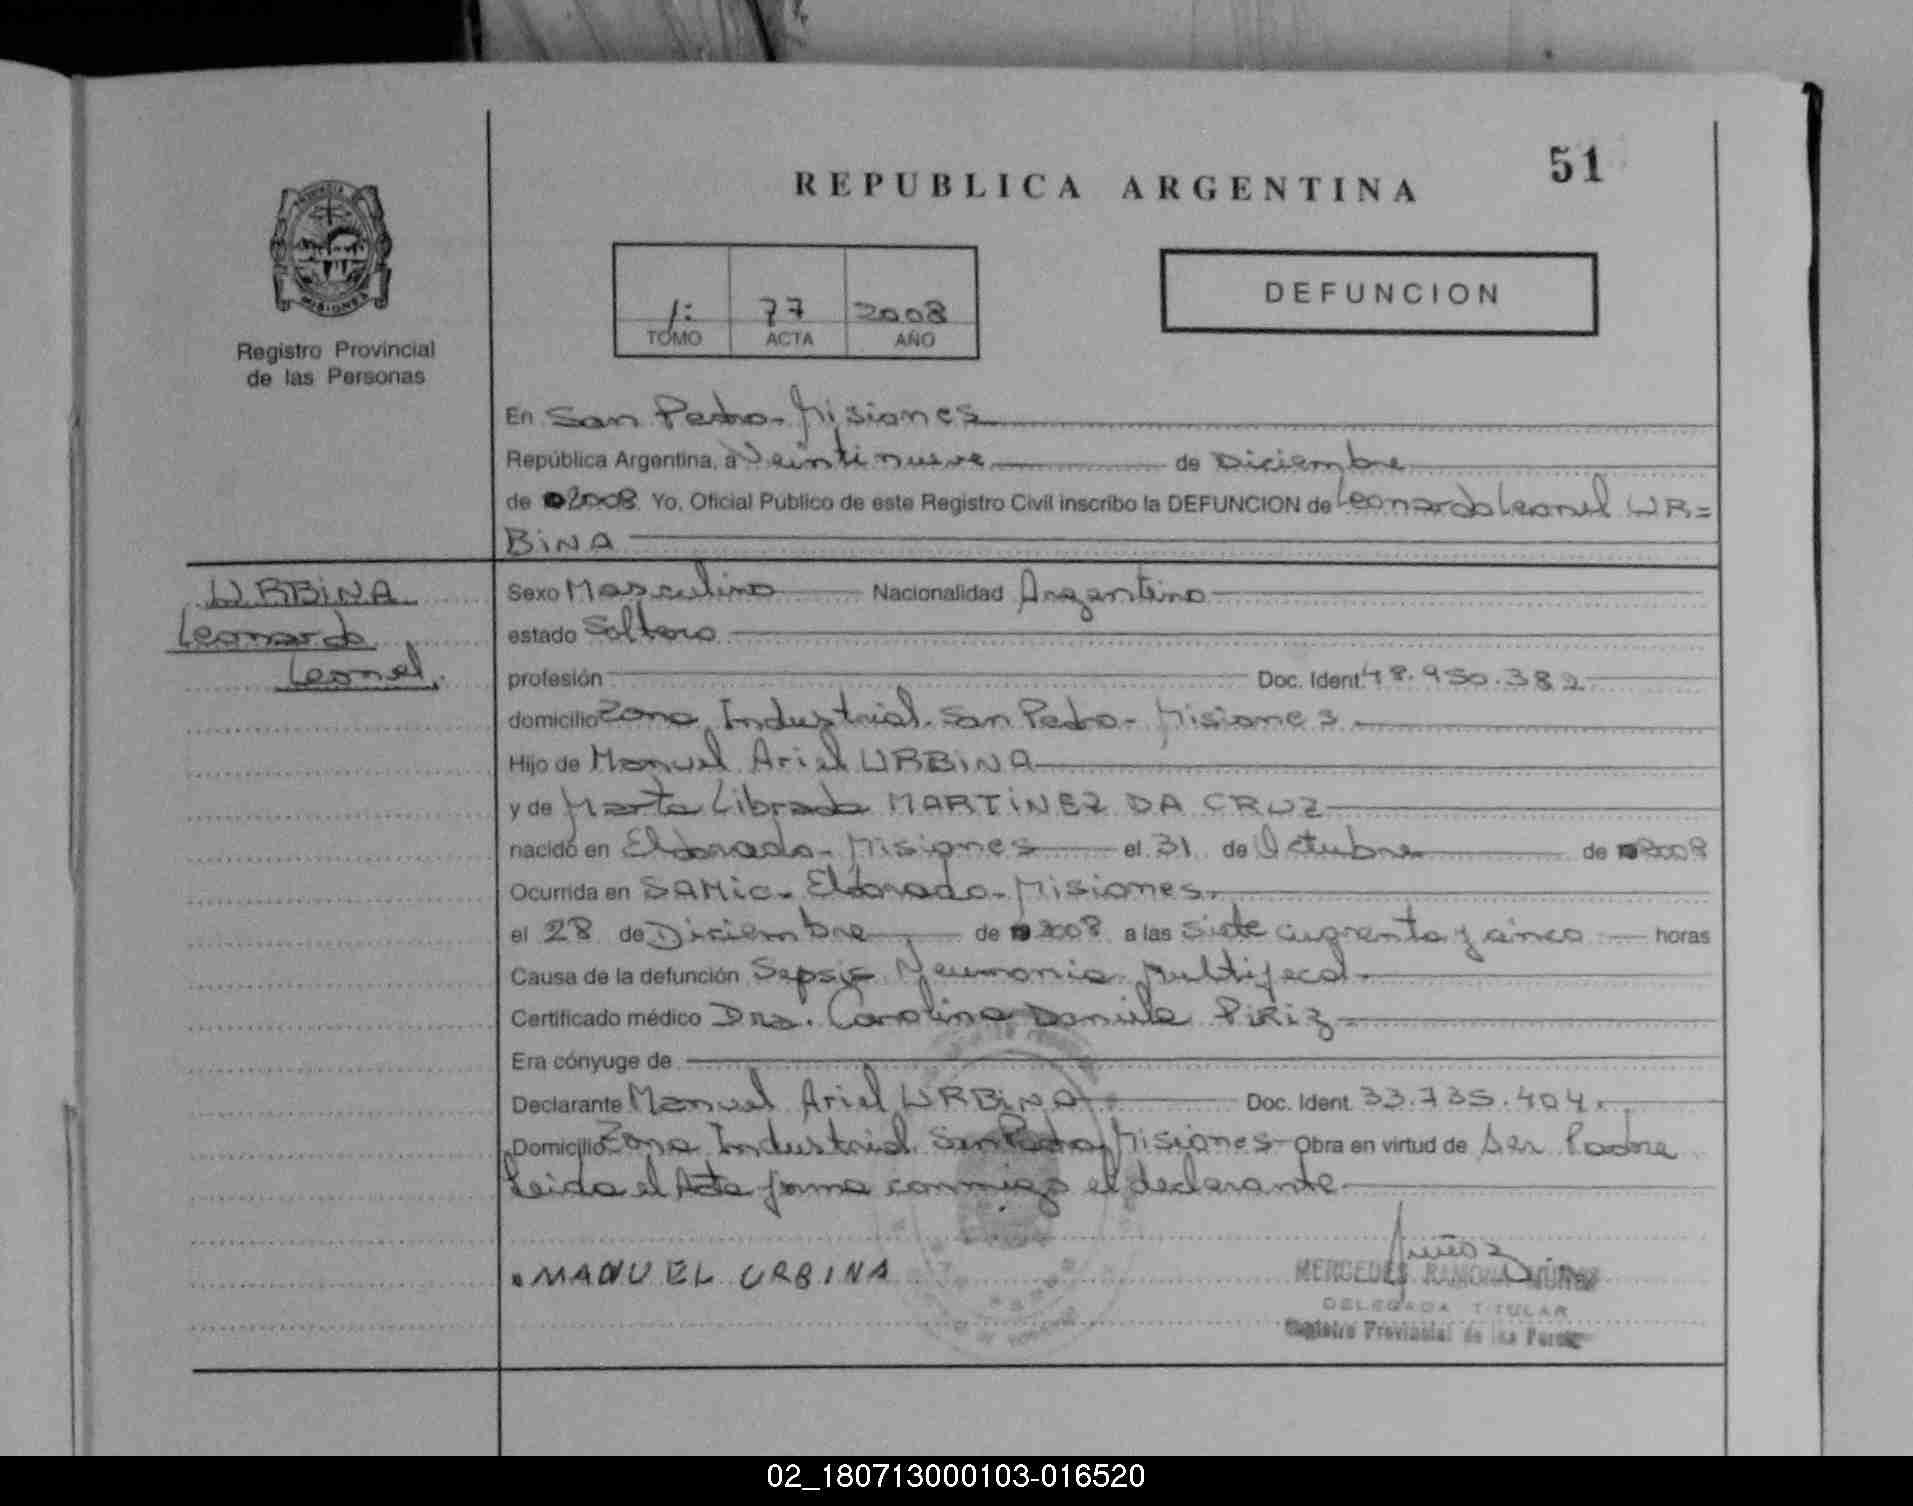 51
REPUBLICA ARGENTINA
DEFUNCION
1: 77 2008
TOMO ACTA AÑO
PROVINCIA
MISIONES
Registro Provincial
de las Personas
En San Pedro - Misiones
República Argentina, a Veintinueve de Diciembre
de 2008 Yo, Oficial Público de este Registro Civil inscribo la DEFUNCION de Leonardo Leonel UR=
BiNA
URBiNA
Leonardo
Leonel.
Sexo Masculino Nacionalidad Argentino
estado Soltero
profesión Doc. Ident. 48.950.382
domicilio Zona Industrial. San Pedro - Misiones
Hijo de Manuel Ariel URBiNA
y de Marta Librada MARTiNEZ DA CRUZ
nacido en Eldorado - Misiones el 31 de Octubre de 2008
Ocurrida en SAMic - Eldorado - Misiones.
el 28 de Diciembre de 2008 a las Siete cuarenta y cinco horas
Causa de la defunción Sepsis Neumonia Multifocal
Certificado médico Dra. Carolina Daniela PiRiz
Era cónyuge de
Declarante Manuel Ariel URBiNA Doc. Ident. 33.735.404.
Domicilio Zona Industrial San Pedro Misiones Obra en virtud de Ser Padre
Leida el Acta firma conmigo el declarante
MANUEL URBINA
MERCEDES RAMONA MUÑOZ
DELEGADA TITULAR
Registro Provincial de las
02_180713000103-016520